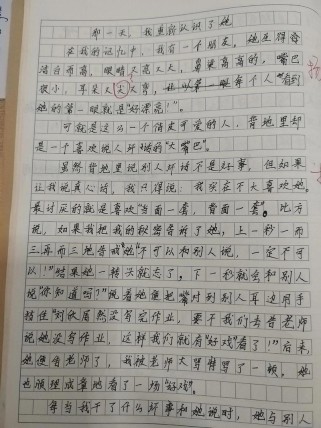 那一天，我重新认识了她
在我的记忆中，我有一个朋友，她长得脸
洁白而高，眼睛又亮又大，鼻梁高高的，嘴巴
很小，耳朵又大又
她的第一眼就是“好漂亮！”。
可就是这么一个俏皮可爱的人，背地里却
是一个喜欢说人坏话的“大嘴巴”。
虽然背地里说别人坏话不是坏事，但如果
让我说真心话，我只得说：我实在不太喜欢她。
最讨厌的就是喜欢“当面一套，背面一套”。比方
说，如果我把我的秘密告诉了她，上一秒一而
三再而三地告诫她“不可以和别人说，一定不可
以！”结果她一转头就忘了，下一秒就会和别人
说“你知道吗？”说着她便把嘴对到别人耳边用手
挡住“对
说她没写作业，这样我们就有“好戏”看了！”后来，
她便告老师了，我被老师大骂特骂了一顿，她
也很理成章地看了一场“好戏”。
每当我干了什么坏事和她说时，她与别人